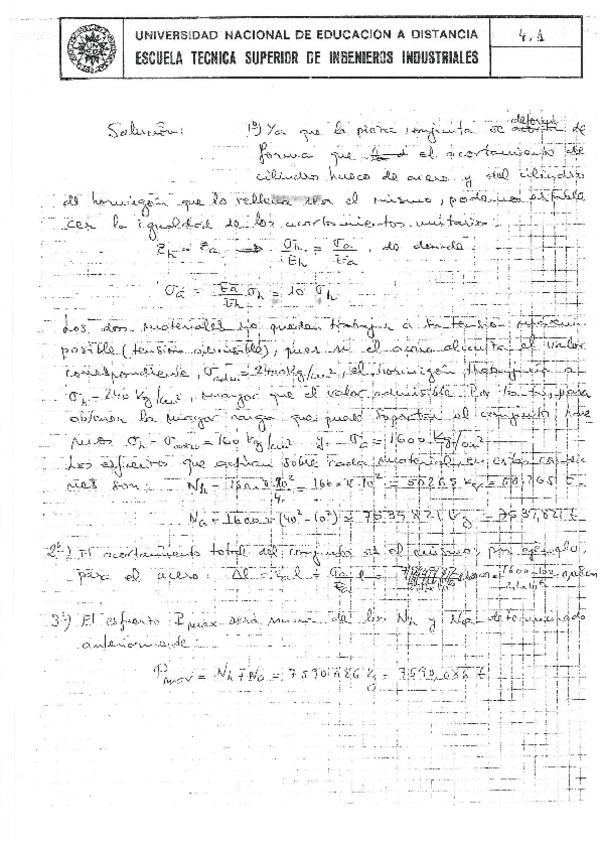 UNIVERSIDAD NACIONAL DE EDUCACION A DISTANCIA
ESCUELA TECNICA SUPERIOR DE INGENIEROS INDUSTRIALES
4.1
Solución: 1º) Ya que la pieza conjunta se deforma de
forma que el acortamiento del
cilindro hueco de acero y del cilindro
de hormigón que lo rellena sea el mismo, podemos estable
cer la igualdad de los acortamientos unitarios:
εh = εa → σh/Eh = σa/Ea, de donde:
σa = Ea/Eh σh = 10 σh
Los dos materiales no pueden trabajar a su tensión máxima
posible (tensión admisible), pues si el acero alcanza el valor
correspondiente, σadm = 2400 Kg/cm², el hormigón trabajaría a
σh = 240 Kg/cm², mayor que el valor admisible. Por lo tanto, para
obtener la mayor carga que puede soportar el conjunto hare
mos σh = σadm = 160 Kg/cm² y σa = 1600 Kg/cm²
Los esfuerzos que actúan sobre cada material en estas condicio
nes son: Nh =
Na = 1600 π (40² - 10²) =
2º) El acortamiento total del conjunto es el mismo, por ejemplo,
para el acero: Δl = εa l = σa/Ea l =
3º) El esfuerzo Pmax será suma de los Nh y Na determinado
anteriormente:
Pmax = Nh + Na =